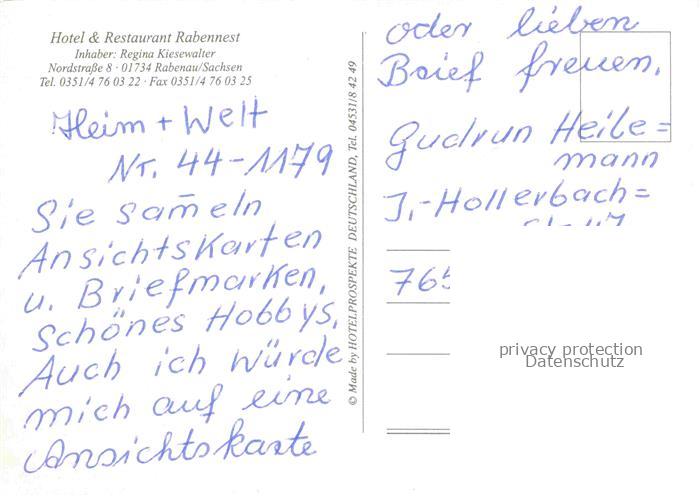 Hotel & Restaurant Rabennest
Inhaber: Regina Kiesewalter
Nordstraße 8 · 01734 Rabenau/Sachsen
Tel. 0351/4 76 03 22 · Fax 0351/4 76 03 25
Heim + Welt
Nr. 44-1179
Sie sam̄eln
Ansichtskarten
u. Briefmarken,
Schönes Hobbys,
Auch ich würde
mich auf eine
Ansichtskarte
© Made by HOTELPROSPEKTE DEUTSCHLAND, Tel. 04531/8 42 49
oder lieben
Brief freuen.
Gudrun Heile=
mann
J.-Hollerbach=
765
privacy protection
Datenschutz